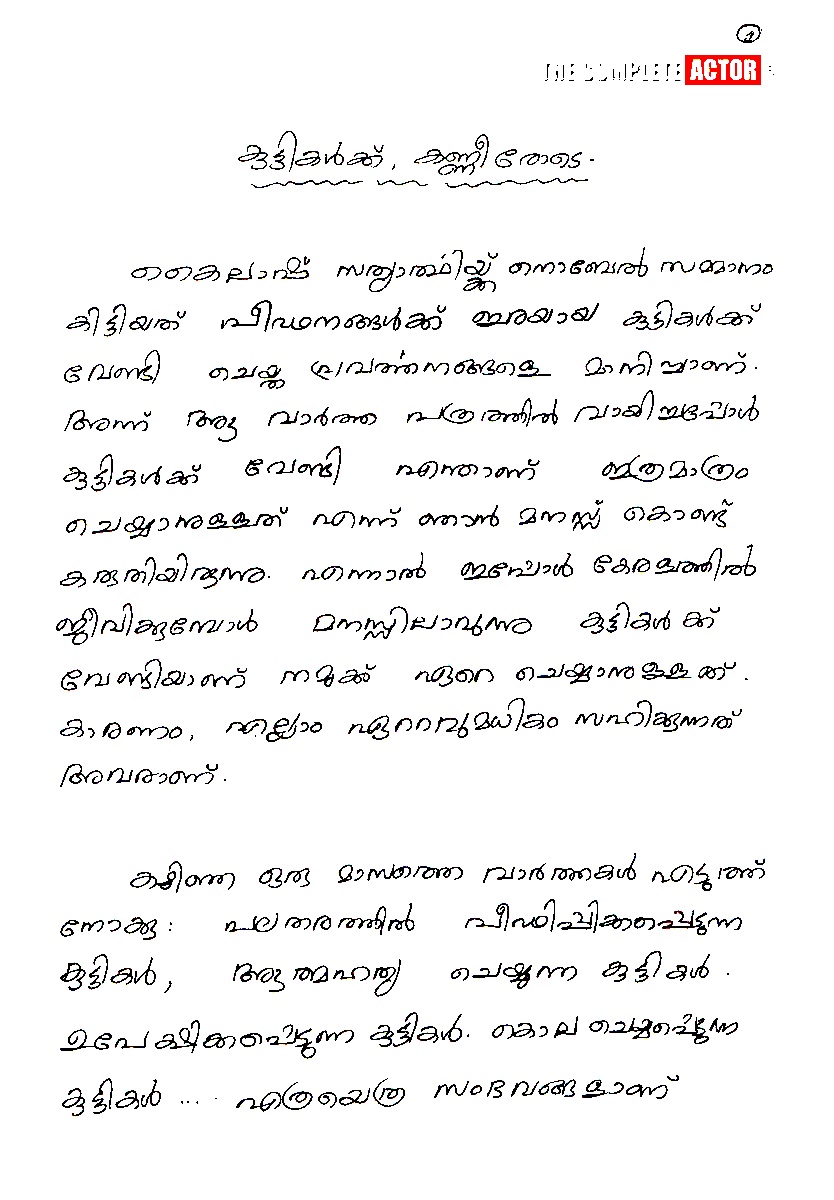 1
THE COMPLETE ACTOR
കുട്ടികൾക്ക്, കണ്ണീരോടെ.
കൈലാഷ് സത്യാർത്ഥിയ്ക്ക് നൊബേൽ സമ്മാനം
കിട്ടിയത് പീഢനങ്ങൾക്ക് ഇരയായ കുട്ടികൾക്ക്
വേണ്ടി ചെയ്ത പ്രവർത്തനങ്ങളെ മാനിച്ചാണ്.
അന്ന് ആ വാർത്ത പത്രത്തിൽ വായിച്ചപ്പോൾ
കുട്ടികൾക്ക് വേണ്ടി എന്താണ് ഇത്രമാത്രം
ചെയ്യാനുള്ളത് എന്ന് ഞാൻ മനസ്സ് കൊണ്ട്
കരുതിയിരുന്നു. എന്നാൽ ഇപ്പോൾ കേരളത്തിൽ
ജീവിക്കുമ്പോൾ മനസ്സിലാവുന്നു കുട്ടികൾക്ക്
വേണ്ടിയാണ് നമുക്ക് ഏറെ ചെയ്യാനുള്ളത്.
കാരണം, എല്ലാം ഏററവുമധികം സഹിക്കുന്നത്
അവരാണ്.
കഴിഞ്ഞ ഒരു മാസത്തെ വാർത്തകൾ എടുത്ത്
നോക്കൂ: പലതരത്തിൽ പീഢിപ്പിക്കപ്പെടുന്ന
കുട്ടികൾ, ആത്മഹത്യ ചെയ്യുന്ന കുട്ടികൾ.
ഉപേക്ഷിക്കപ്പെടുന്ന കുട്ടികൾ. കൊല ചെയ്യപ്പെടുന്ന
കുട്ടികൾ ... എത്രയെത്ര സംഭവങ്ങളാണ്